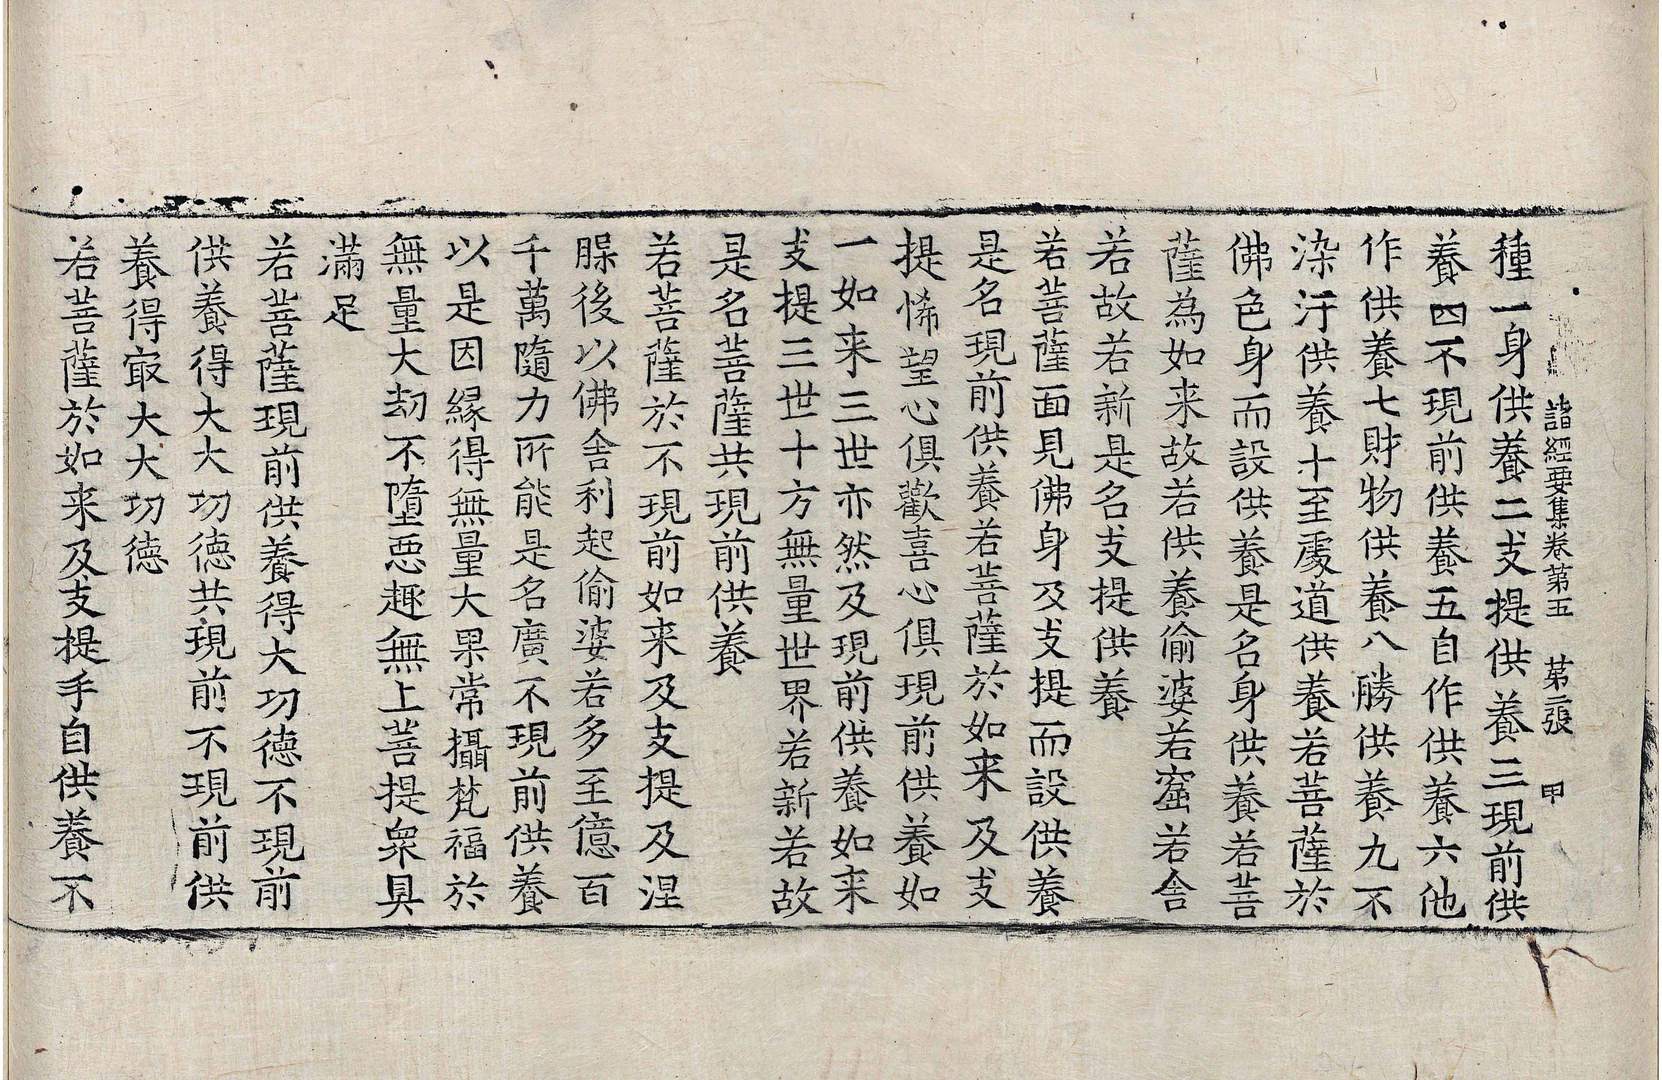 諸經要集卷第五　第二張　甲
種一身供養二支提供養三現前供
養四不現前供養五自作供養六他
作供養七財物供養八勝供養九不
染汙供養十至處道供養若菩薩於
佛色身而設供養是名身供養若菩
薩為如来故若供養偷婆若窟若舎
若故若新是名支提供養
若菩薩面見佛身及支提而設供養
是名現前供養若菩薩於如来及支
提悕望心俱歡喜心俱現前供養如
一如来三世亦然及現前供養如来
支提三世十方無量世界若新若故
是名菩薩共現前供養
若菩薩於不現前如来及支提及涅
腂後以佛舎利起偷婆若多至億百
千萬隨力所能是名廣不現前供養
以是因縁得無量大果常攝梵福於
無量大劫不墮惡趣無上菩提衆具
滿足
若菩薩現前供養得大功德不現前
供養得大大功德共現前不現前供
養得冣大大功德
若菩薩於如来及支提手自供養不